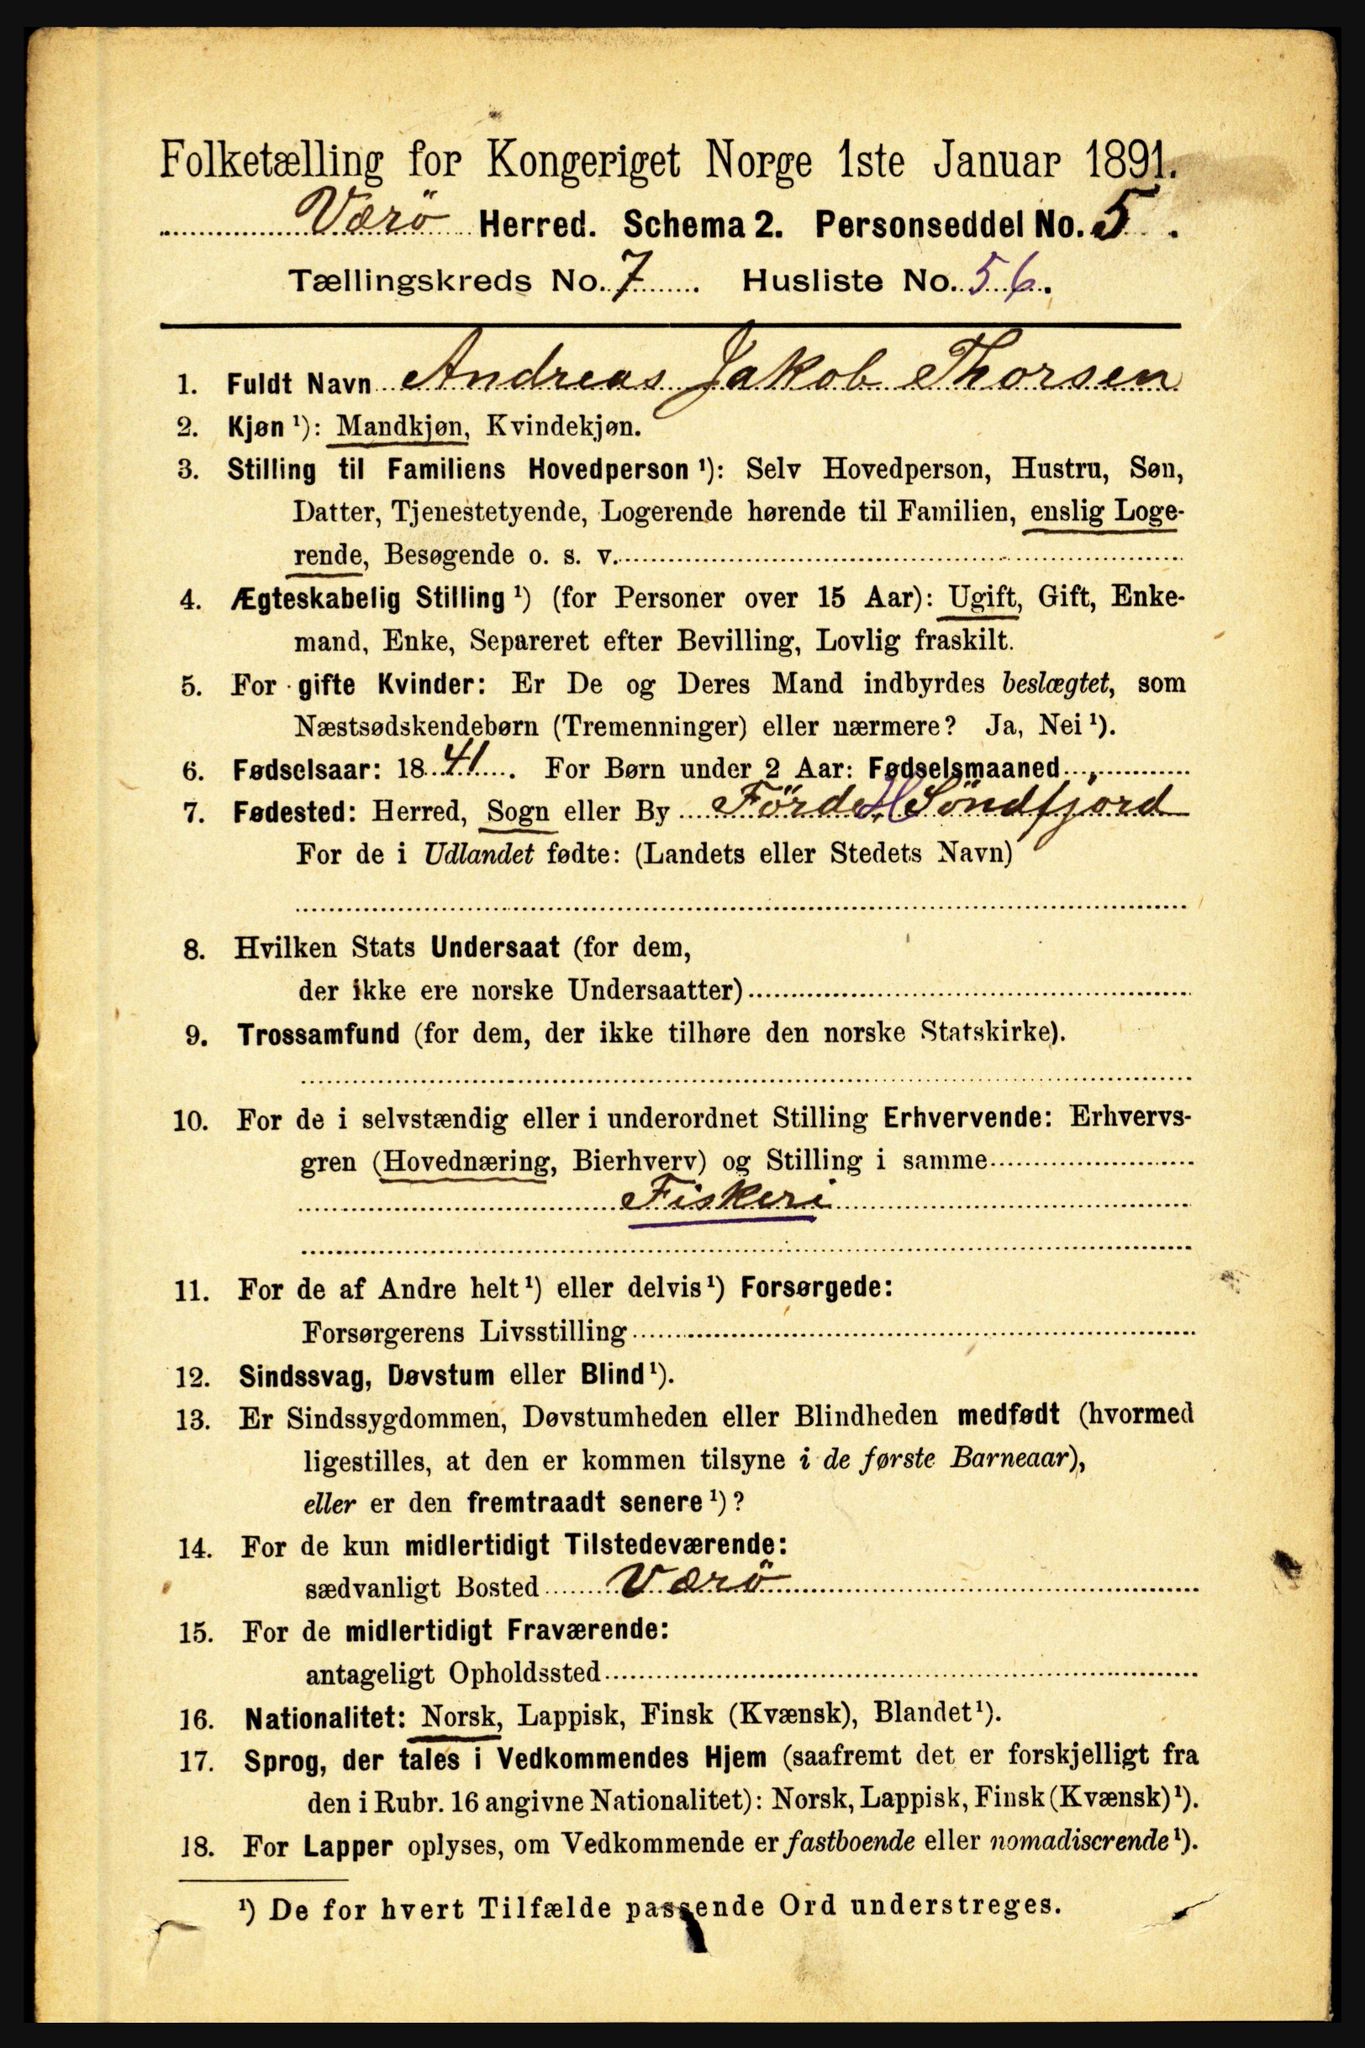 Folketælling for Kongeriget Norge 1ste Januar 1891.
Værö Herred. Schema 2. Personseddel No. 5.
Tællingskreds No. 7. Husliste No. 56.
1. Fuldt Navn Andreas Jakob Thorsen
2. Kjøn ¹): Mandkjøn, Kvindekjøn.
3. Stilling til Familiens Hovedperson ¹): Selv Hovedperson, Hustru, Søn,
Datter, Tjenestetyende, Logerende hørende til Familien, enslig Loge-
rende, Besøgende o. s. v.
4. Ægteskabelig Stilling ¹) (for Personer over 15 Aar): Ugift, Gift, Enke-
mand, Enke, Separeret efter Bevilling, Lovlig fraskilt.
5. For gifte Kvinder: Er De og Deres Mand indbyrdes beslægtet, som
Næstsødskendebørn (Tremenninger) eller nærmere? Ja, Nei ¹).
6. Fødselsaar: 1841. For Børn under 2 Aar: Fødselsmaaned
7. Fødested: Herred, Sogn eller By Förde, H Söndfjord
For de i Udlandet fødte: (Landets eller Stedets Navn)
8. Hvilken Stats Undersaat (for dem,
der ikke ere norske Undersaatter)
9. Trossamfund (for dem, der ikke tilhøre den norske Statskirke).
10. For de i selvstændig eller i underordnet Stilling Erhvervende: Erhvervs-
gren (Hovednæring, Bierhverv) og Stilling i samme
Fiskeri
11. For de af Andre helt ¹) eller delvis ¹) Forsørgede:
Forsørgerens Livsstilling
12. Sindssvag, Døvstum eller Blind ¹).
13. Er Sindssygdommen, Døvstumheden eller Blindheden medfødt (hvormed
ligestilles, at den er kommen tilsyne i de første Barneaar),
eller er den fremtraadt senere ¹)?
14. For de kun midlertidigt Tilstedeværende:
sædvanligt Bosted Værö
15. For de midlertidigt Fraværende:
antageligt Opholdssted
16. Nationalitet: Norsk, Lappisk, Finsk (Kvænsk), Blandet ¹).
17. Sprog, der tales i Vedkommendes Hjem (saafremt det er forskjelligt fra
den i Rubr. 16 angivne Nationalitet): Norsk, Lappisk, Finsk (Kvænsk) ¹).
18. For Lapper oplyses, om Vedkommende er fastboende eller nomadiserende ¹).
¹) De for hvert Tilfælde passende Ord understreges.